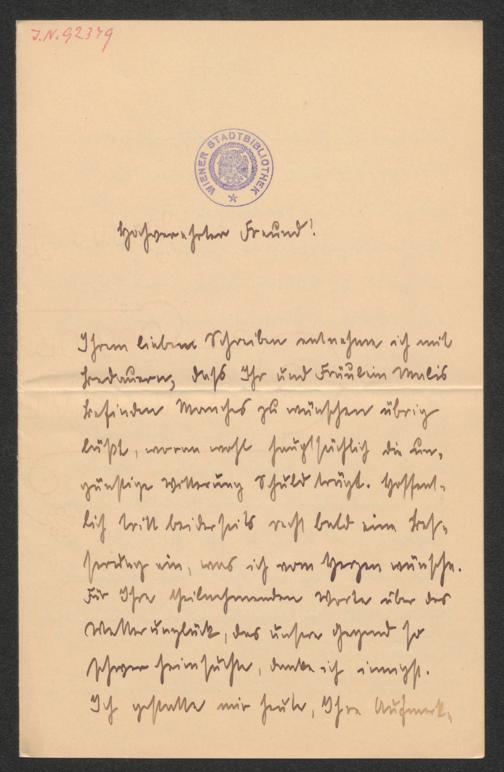 J.N. 92379
WIENER STADTBIBLIOTHEK
Hochverehrter Freund!
Ihrem lieben Schreiben entnehme ich mit
Bedauern, daß Ihr und Fräulein Malis
Befinden Manches zu wünschen übrig
läßt, woran wohl hauptsächlich die un-
günstige Witterung Schuld trägt. Hoffent-
lich tritt beiderseits recht bald eine Bes-
serung ein, was ich vom Herzen wünsche.
Für Ihre theilnehmenden Worte über das
Wetterunglück, das unsere Gegend so
schwer heimsuchte, danke ich innigst.
Ich gestatte mir heute, Ihre Aufmerk-